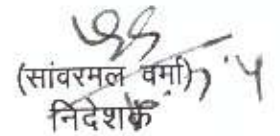 (सांवरमल वर्मा)
निदेशक